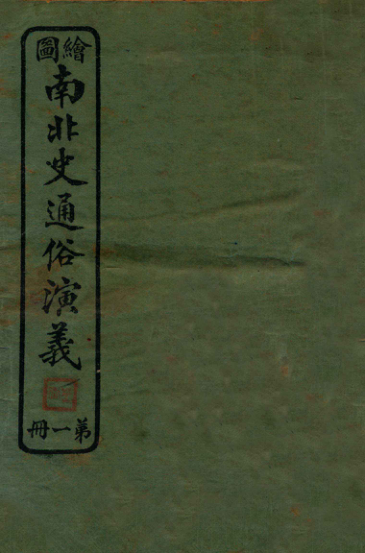 繪圖
南北史通俗演義
第一冊